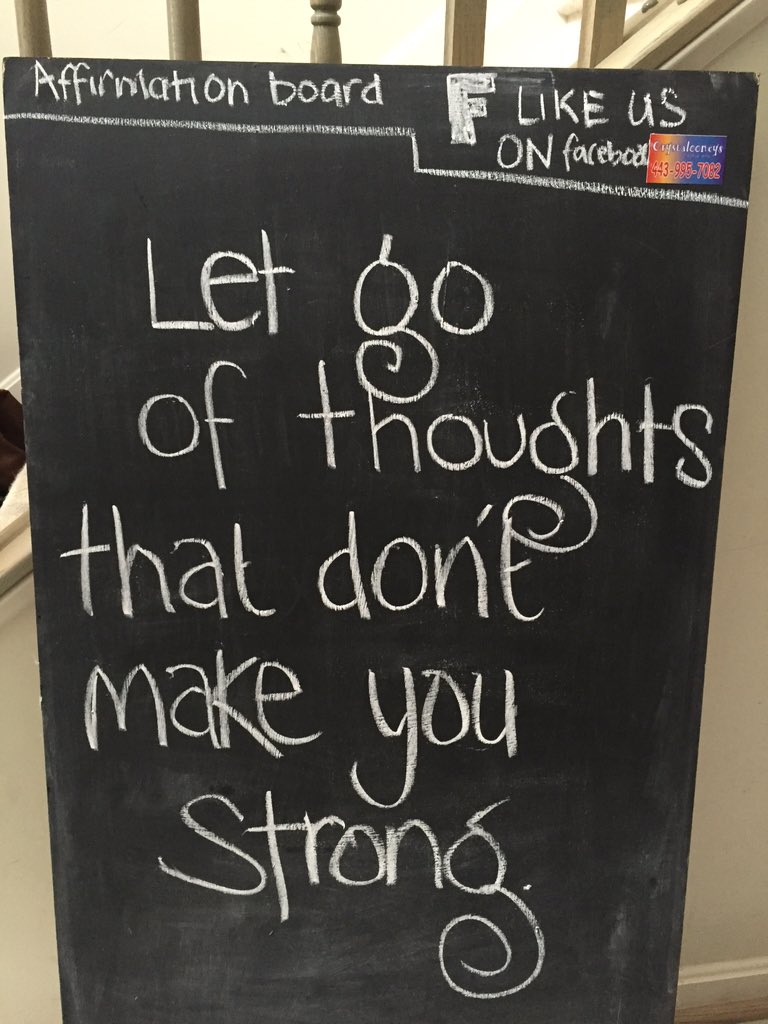 Affirmation board
F LIKE US
ON facebook
Crystalcooneys
443-995-7082
Let go
of thoughts
that don't
make you
Strong.